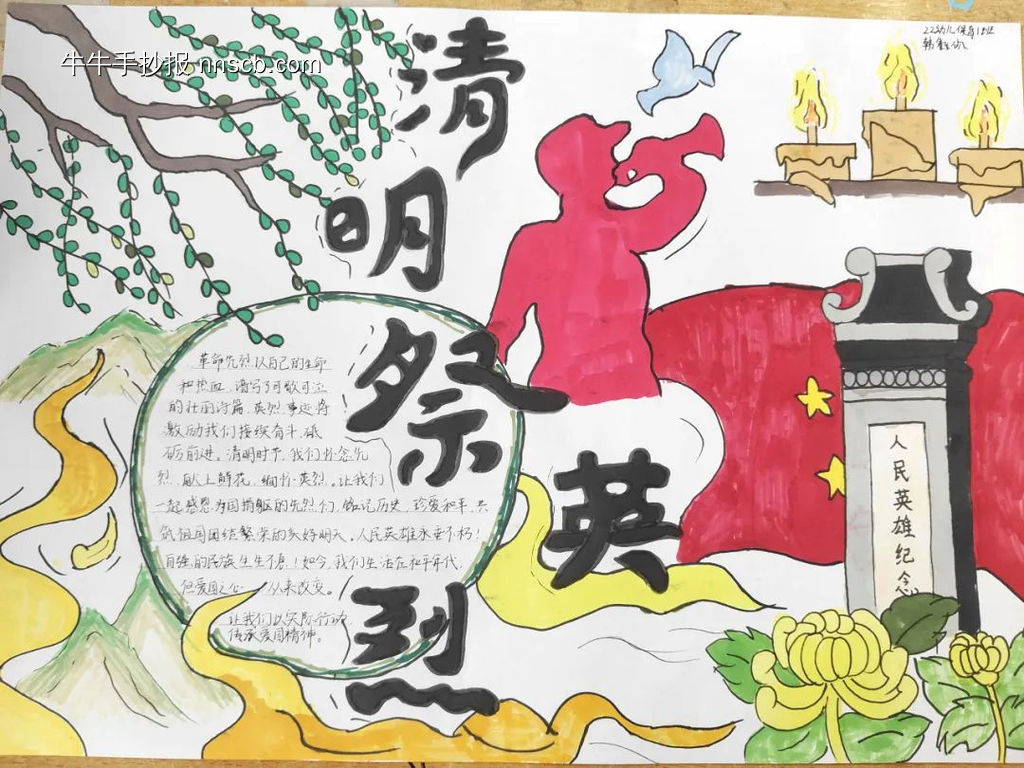 牛牛手抄报 nnscb.com
清明祭英烈
革命先烈以自己的生命
和热血,谱写了可歌可泣
的壮丽诗篇,英烈事迹将
激励我们接续奋斗,砥
砺前进。清明时节,我们怀念先
烈,献上鲜花,缅怀英烈。让我们
一起感恩为国捐躯的先烈们,铭记历史,珍爱和平,共
筑祖国团结繁荣的美好明天,人民英雄永垂不朽!
自强的民族生生不息!如今,我们生活在和平年代,
但爱国之心一从未改变。
让我们以实际行动
传承爱国精神。
人民英雄纪念